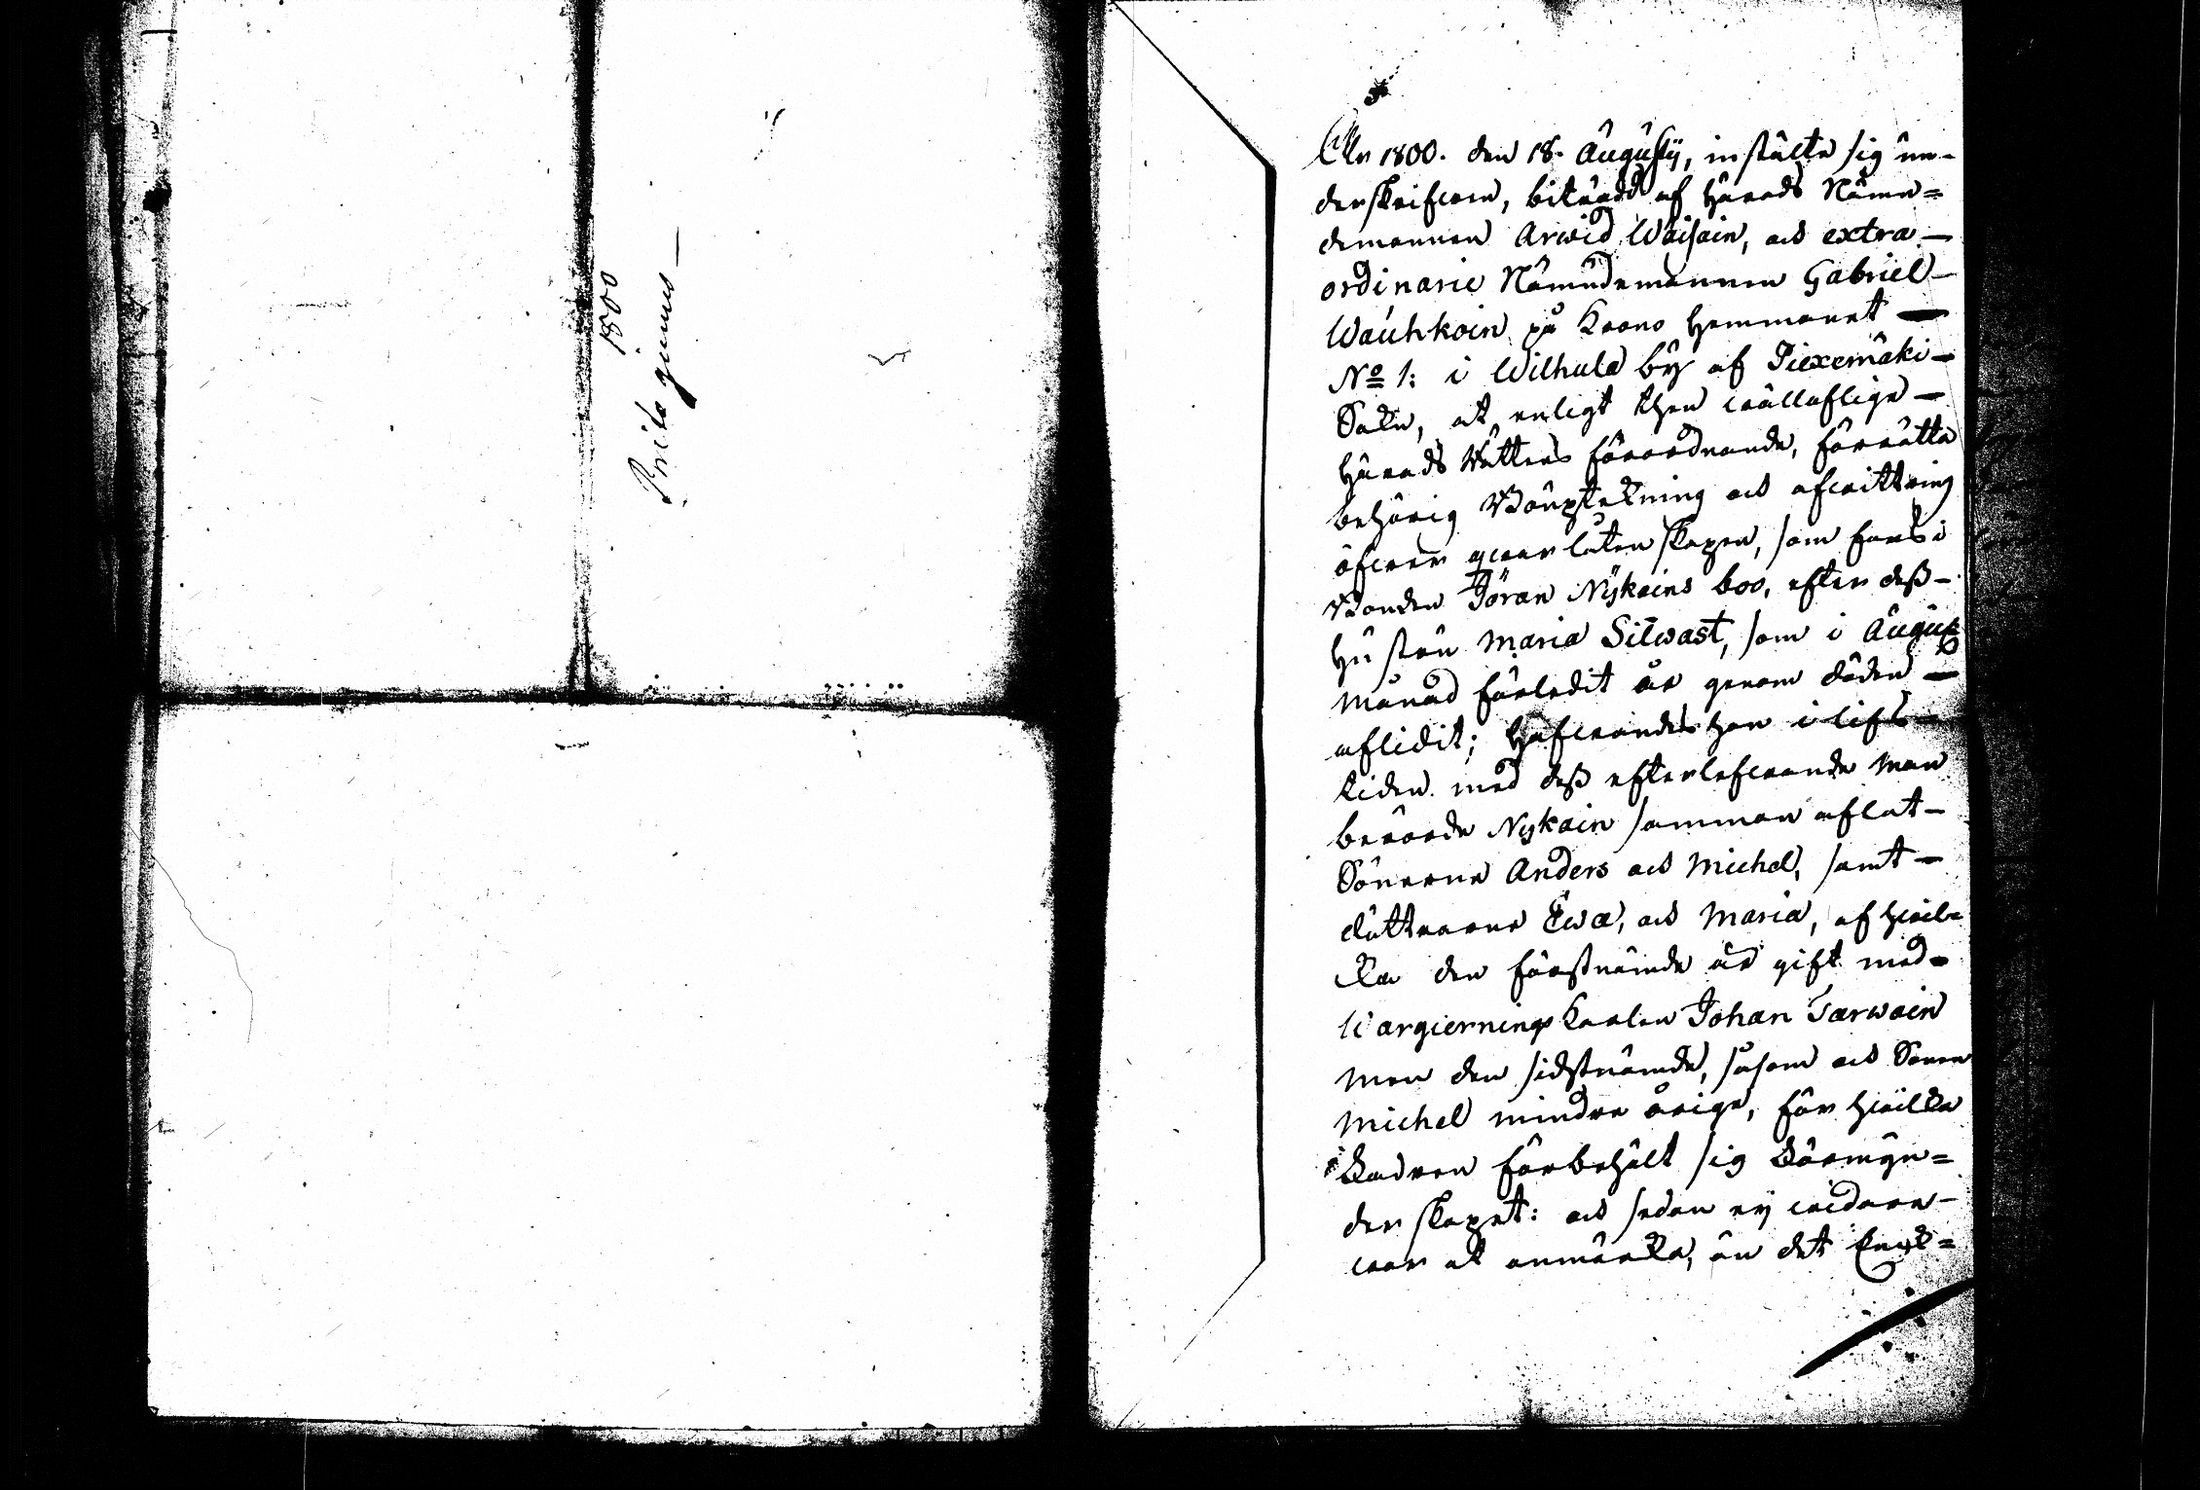 1800
År 1800. den 18. Augusty, instälte sig un-
derskrifwen, biträdd af Härads Nämn=
demannen Arwid Waisain, och extra
ordinarie Nämndemannen Gabriel
Wauhkoin på Krono Hemmanet
No 1: i Wilhula by af Piexemäki
Sokn, at enligt then wällofliga
Härads Rättens förordnande, förrätta
behörig Bouptekning och afwittring
öfwer qwarlåtenskapen, som fans i
Bonden Jöran Nykains boo, efter dess
Hustru Maria Silwast, som i Augusti
Månad förledit år genom döden
aflidit; Hafwandes hon i lifs-
tiden med dess efterlefwande Man
berörde Nykain samman aflat
Sönerne Anders och Michel, samt
döttrarne Ewa, och Maria, af hwil-
ka den förstnämde är gift med
Wargiernings Karlen Johan Tarwain
Men den sidstnämde, såsom och Sonen
Michel mindre årige, för hwilka
Fadren förbehölt sig Förmyn=
derskapet: och sedan ey widare
war at anmärka, än det Enke=